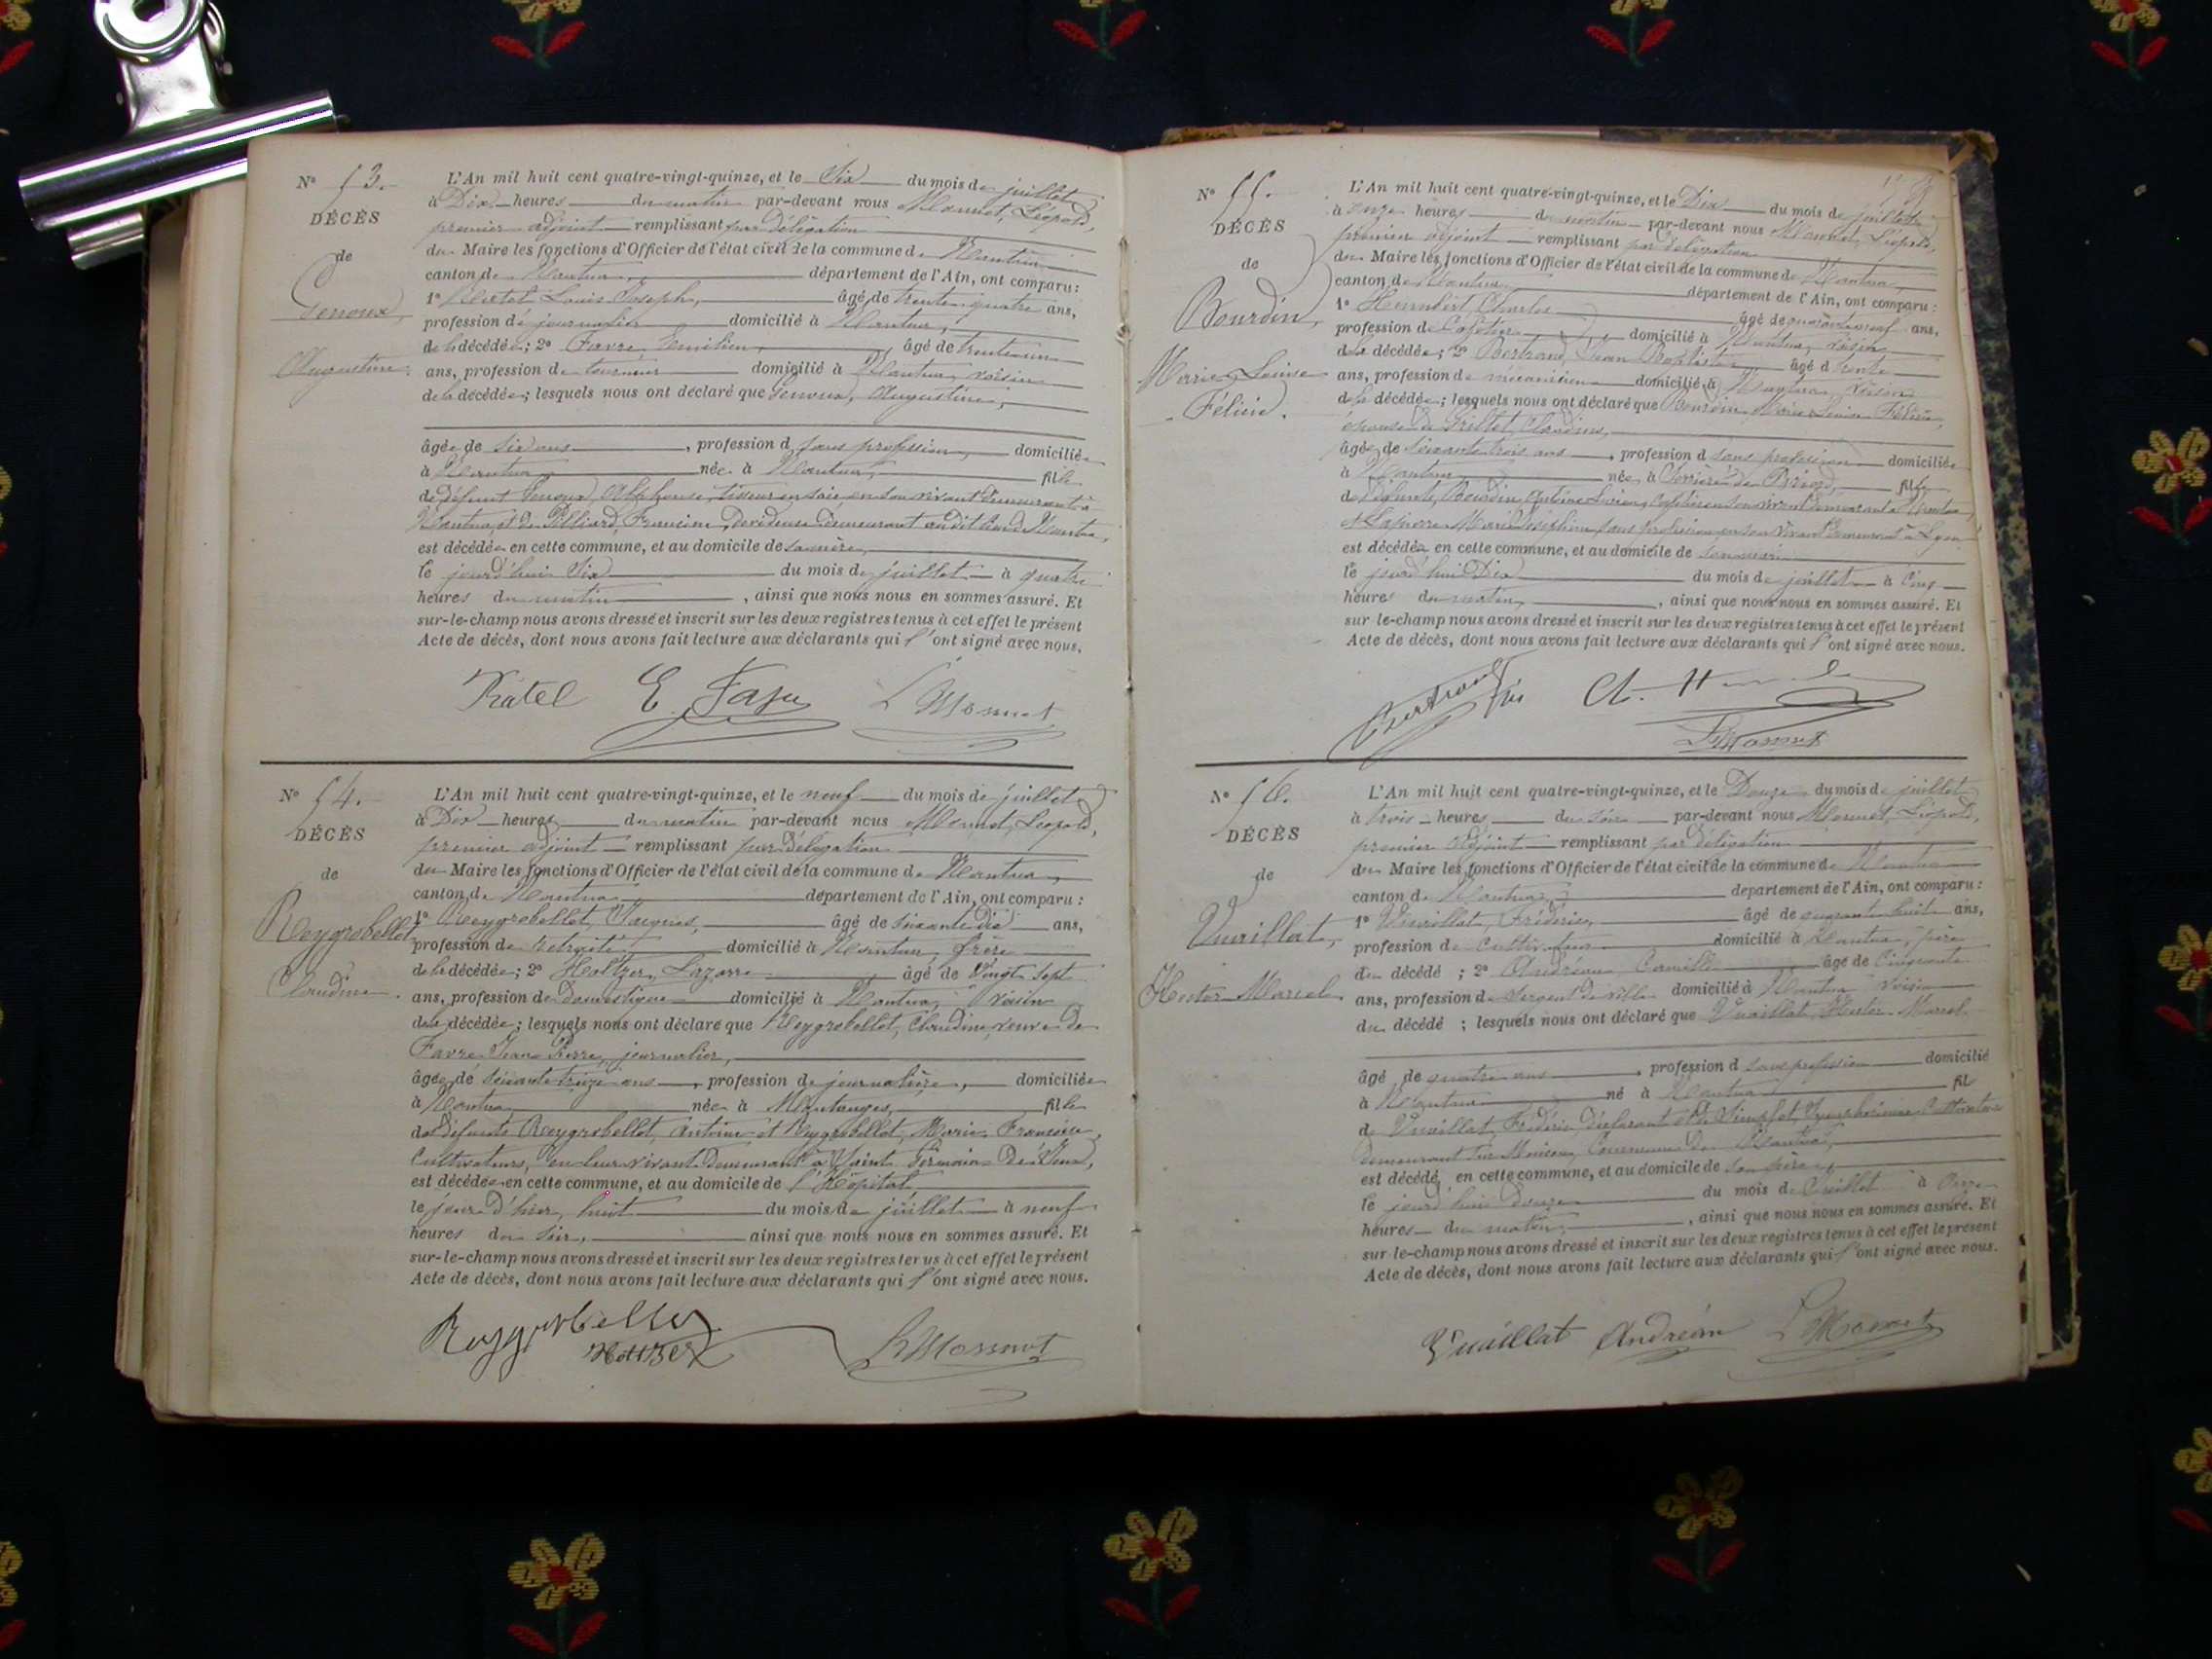 N° 53.
DÉCÈS
de
Genoux,
Augustine.
L'An mil huit cent quatre-vingt-quinze, et le Six du mois de juillet
à Dix heures du matin par-devant nous Monnet, Léopold,
premier adjoint remplissant par délégation
du Maire les fonctions d'Officier de l'état civil de la commune de Nantua
canton de Nantua département de l'Ain, ont comparu :
1° Louis Joseph, âgé de trente quatre ans,
profession de journalier domicilié à Nantua,
de la décédée ; 2° Favre Emilien, âgé de trente un
ans, profession de tourneur domicilié à Nantua, voisin
de la décédée ; lesquels nous ont déclaré que Genoux, Augustine,
âgée de six ans, profession d sans profession domiciliée
à Nantua née à Nantua, fille
de défunt Genoux, Alphonse, tisseur en soie en son vivant demeurant à
Nantua, et de Pilliard, Francine, dévideuse demeurant audit lieu de Nantua,
est décédée en cette commune, et au domicile de sa mère,
le jourd'hui Six du mois de juillet à quatre
heures du matin, ainsi que nous nous en sommes assuré. Et
sur-le-champ nous avons dressé et inscrit sur les deux registres tenus à cet effet le présent
Acte de décès, dont nous avons fait lecture aux déclarants qui l'ont signé avec nous.
E. Favre L Monnet
N° 54.
DÉCÈS
de
Reygrobellet,
Claudine.
L'An mil huit cent quatre-vingt-quinze, et le neuf du mois de juillet
à Dix heures du matin par-devant nous Monnet, Léopold,
premier adjoint remplissant par délégation
du Maire les fonctions d'Officier de l'état civil de la commune de Nantua,
canton de Nantua département de l'Ain, ont comparu :
1° Reygrobellet, Jacques, âgé de soixante dix ans,
profession de retraité domicilié à Nantua, frère
de la décédée ; 2° Holtzer, Lazare âgé de vingt sept
ans, profession de domestique domicilié à Nantua, voisin
de la décédée ; lesquels nous ont déclaré que Reygrobellet, Claudine, veuve de
Favre Jean Pierre, journalier,
âgée de soixante treize ans, profession de journalière, domiciliée
à Nantua née à Montanges, fille
de défunts Reygrobellet, Antoine et Reygrobellet, Marie Françoise,
cultivateurs, en leur vivant demeurant à Saint Germain de Joux,
est décédée en cette commune, et au domicile de l'Hôpital
le jour d'hier, huit du mois de juillet à neuf
heures du soir, ainsi que nous nous en sommes assuré. Et
sur-le-champ nous avons dressé et inscrit sur les deux registres tenus à cet effet le présent
Acte de décès, dont nous avons fait lecture aux déclarants qui l'ont signé avec nous.
Reygrobellet
Holtzer L Monnet
N° 55.
DÉCÈS
de
Bourdin,
Marie Louise
Félicie.
L'An mil huit cent quatre-vingt-quinze, et le Dix du mois de juillet
à onze heures du matin par-devant nous Monnet, Léopold,
premier adjoint remplissant par délégation
du Maire les fonctions d'Officier de l'état civil de la commune de Nantua
canton de Nantua département de l'Ain, ont comparu :
1° Humbert, Charles âgé de quarante neuf ans,
profession de Cafetier domicilié à Nantua, voisin
de la décédée ; 2° Bertrand, Jean Baptiste âgé d trente
ans, profession de mécanicien domicilié à Nantua voisin
de la décédée ; lesquels nous ont déclaré que Bourdin Marie Louise Félicie,
épouse de Grillet, Claudius,
âgée de soixante trois ans, profession d sans profession domiciliée
à Nantua née à Cerdon fille
de défunts, Bourdin, Antoine en son vivant demeurant à Nantua,
et Lapierre Marie Joséphine, sans profession en son vivant demeurant à Lyon
est décédée en cette commune, et au domicile de son mari
le jourd'hui Dix du mois de juillet à cinq
heures du matin, ainsi que nous nous en sommes assuré. Et
sur-le-champ nous avons dressé et inscrit sur les deux registres tenus à cet effet le présent
Acte de décès, dont nous avons fait lecture aux déclarants qui l'ont signé avec nous.
Bertrand fils
L Monnet
N° 56.
DÉCÈS
de
Vuaillat,
Hector Marcel
L'An mil huit cent quatre-vingt-quinze, et le Douze du mois de juillet
à trois heures du soir par-devant nous Monnet, Léopold,
premier adjoint remplissant par délégation
du Maire les fonctions d'Officier de l'état civil de la commune de Nantua
canton de Nantua, département de l'Ain, ont comparu :
1° Vuaillat, Frédéric, âgé de quarante huit ans,
profession de Cultivateur domicilié à Nantua, père
du décédé ; 2° Andréan Camille âgé de cinquante
ans, profession de Sergent de ville domicilié à Nantua voisin
du décédé ; lesquels nous ont déclaré que Vuaillat, Hector Marcel
âgé de quatre ans, profession d sans profession domicilié
à Nantua né à Nantua fil
de Vuaillat, Frédéric, déclarant et de Cultivateurs
demeurant sur Commune de Nantua,
est décédé en cette commune, et au domicile de son père,
le jourd'hui douze du mois de Juillet à onze
heures du matin, ainsi que nous nous en sommes assuré. Et
sur-le-champ nous avons dressé et inscrit sur les deux registres tenus à cet effet le présent
Acte de décès, dont nous avons fait lecture aux déclarants qui l'ont signé avec nous.
Vuaillat Andréan L Monnet